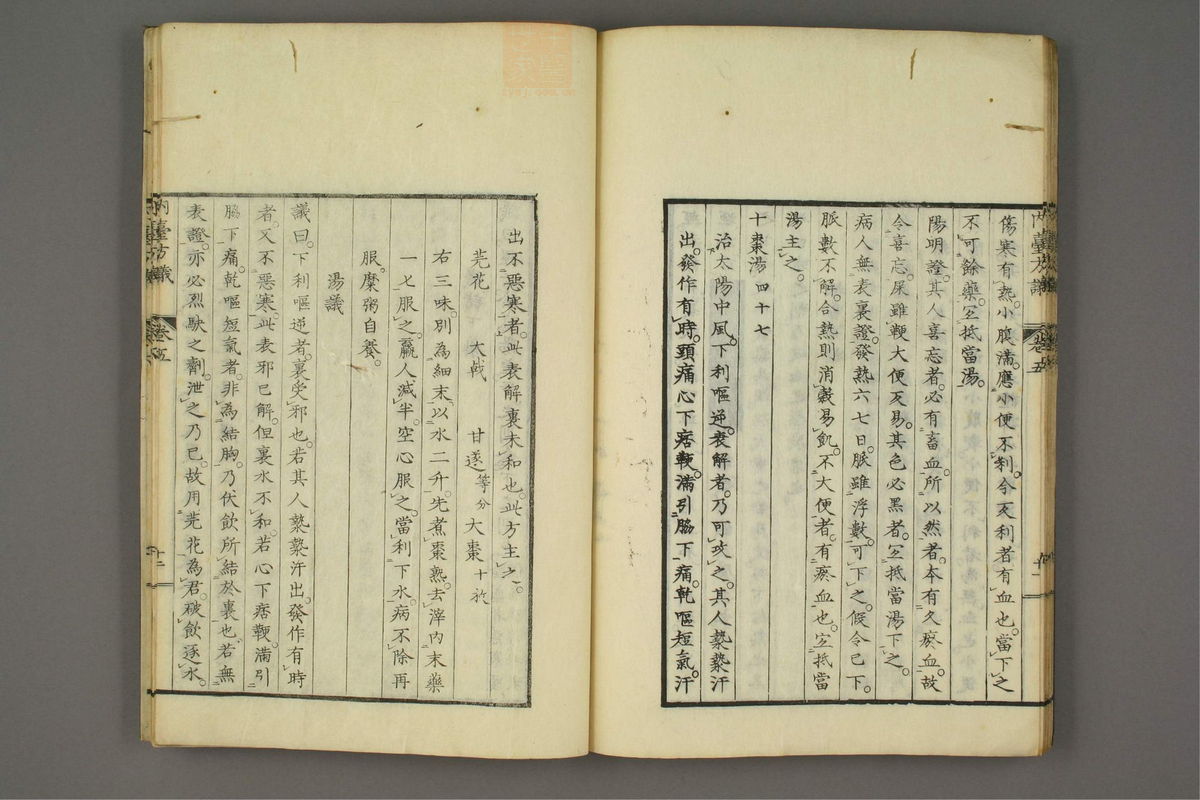 傷寒有熱。小腹滿。應小便不利。今反利者。有血也。當下之
不可餘藥。宜抵當湯。
陽明證。其人喜忘者。必有畜血。所以然者。本有久瘀血。故
令喜忘。屎雖鞕大便反易。其色必黑者。宜抵當湯下之。
病人無表裏證。發熱六七日。脈雖浮數。可下之。假令已下。
脈數不解。合熱則消穀易飢。不大便者。有瘀血也。宜抵當
湯主之。
十棗湯 四十七
治太陽中風。下利嘔逆。表解者。乃可攻之。其人漐漐汗
出。發作有時。頭痛心下痞鞕。滿引脇下痛。乾嘔短氣。汗
出不惡寒者。此表解裏未和也。此方主之。
芫花 大戟 甘遂等分 大棗十枚
右三味。別為細末。以水二升。先煮棗熟。去滓內末藥
一七服之。羸人減半。空心服之。當利下水。病不除再
服。糜粥自養。
湯議
議曰。下利嘔逆者。裏受邪也。若其人漐漐汗出。發作有時
者。又不惡寒。此表邪已解。但裏水不和。若心下痞鞕。滿引
脇下痛。乾嘔短氣者。非為結胸。乃伏飲所結於裏也。若無
表證。亦必烈駃之劑。泄之乃已。故用芫花為君。破飲逐水。
內臺方議 卷五 十二